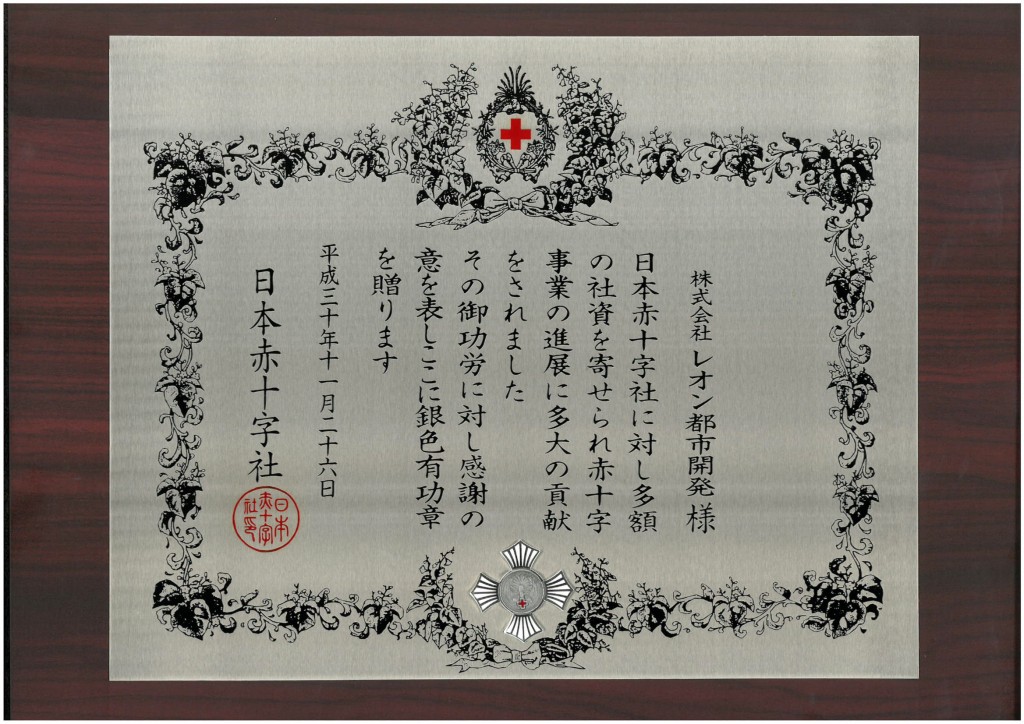 株式会社 レオン都市開発 様
日本赤十字社に対し多額
の社資を寄せられ赤十字
事業の進展に多大の貢献
をされました
その御功労に対し感謝の
意を表しここに銀色有功章
を贈ります
平成三十年十一月二十六日
日本赤十字社
日本
赤十字
社印